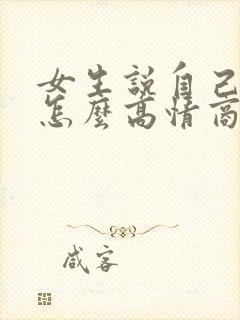 女生說自己
怎麼高情商
咸客